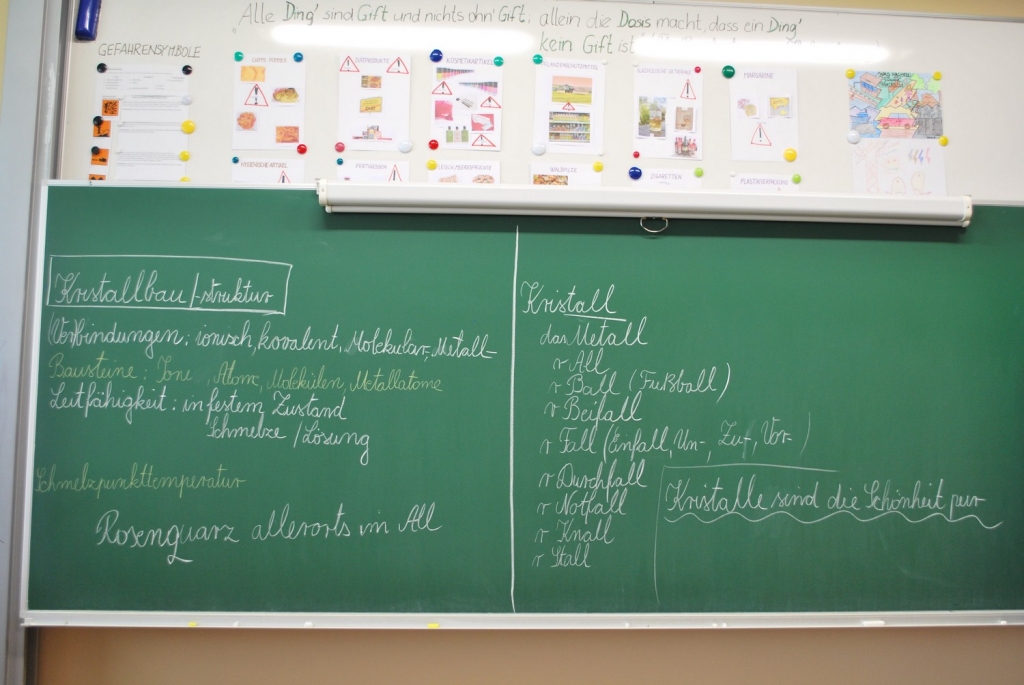 Alle Ding' sind Gift und nichts ohn' Gift, allein die Dosis macht, dass ein Ding'
kein Gift ist
GEFAHRENSYMBOLE
KOSMETIKARTIKEL
MARGARINE
HYGIENISCHE ARTIKEL
WALDPILZE
ZIGARETTEN
PLASTIKVERPACKUNG
Kristallbau/-struktur
(Ver)bindungen: ionisch, kovalent, Molekular, Metall-
Bausteine: Ione, Atome, Molekülen, Metallatome
Leitfähigkeit: in festem Zustand
Schmelze / Lösung
Schmelzpunkttemperatur
Rosenquarz allerorts im All
Kristall
das Metall
r All
r Ball (Fußball)
r Beifall
r Fall (Einfall, Un-, Zu-, Vor- )
r Durchfall
r Notfall
r Knall
r Stall
Kristalle sind die Schönheit pur